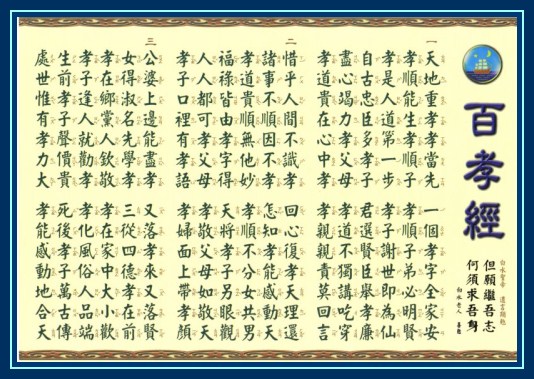 百孝經
但願繼吾志
何須求吾身
白水老人
一
天地重孝孝當先 一個孝字全家安
孝順能生孝順子 孝順子弟必明賢
孝是人道第一步 孝子謝世即為仙
自古忠臣多孝子 君選賢臣舉孝廉
盡心竭力孝父母 孝道不獨講吃穿
孝道貴在心中孝 孝親親責莫回言
二
惜乎人間不識孝 回心復孝天理還
諸事不順因不孝 怎知孝能感動天
孝道貴順無他妙 孝順不分女共男
福祿皆由孝字得 天將孝子另眼觀
人人都可孝父母 孝敬父母如敬天
孝子口裡有孝語 孝婦面上帶孝顏
三
公婆上邊能盡孝 又落孝來又落賢
女得淑名先學孝 三從四德孝在前
孝在鄉黨人欽敬 孝在家中大小歡
孝子逢人就勸孝 孝化風俗人品端
生前孝子聲價貴 死後孝子萬古傳
處世惟有孝力大 孝能感動地合天